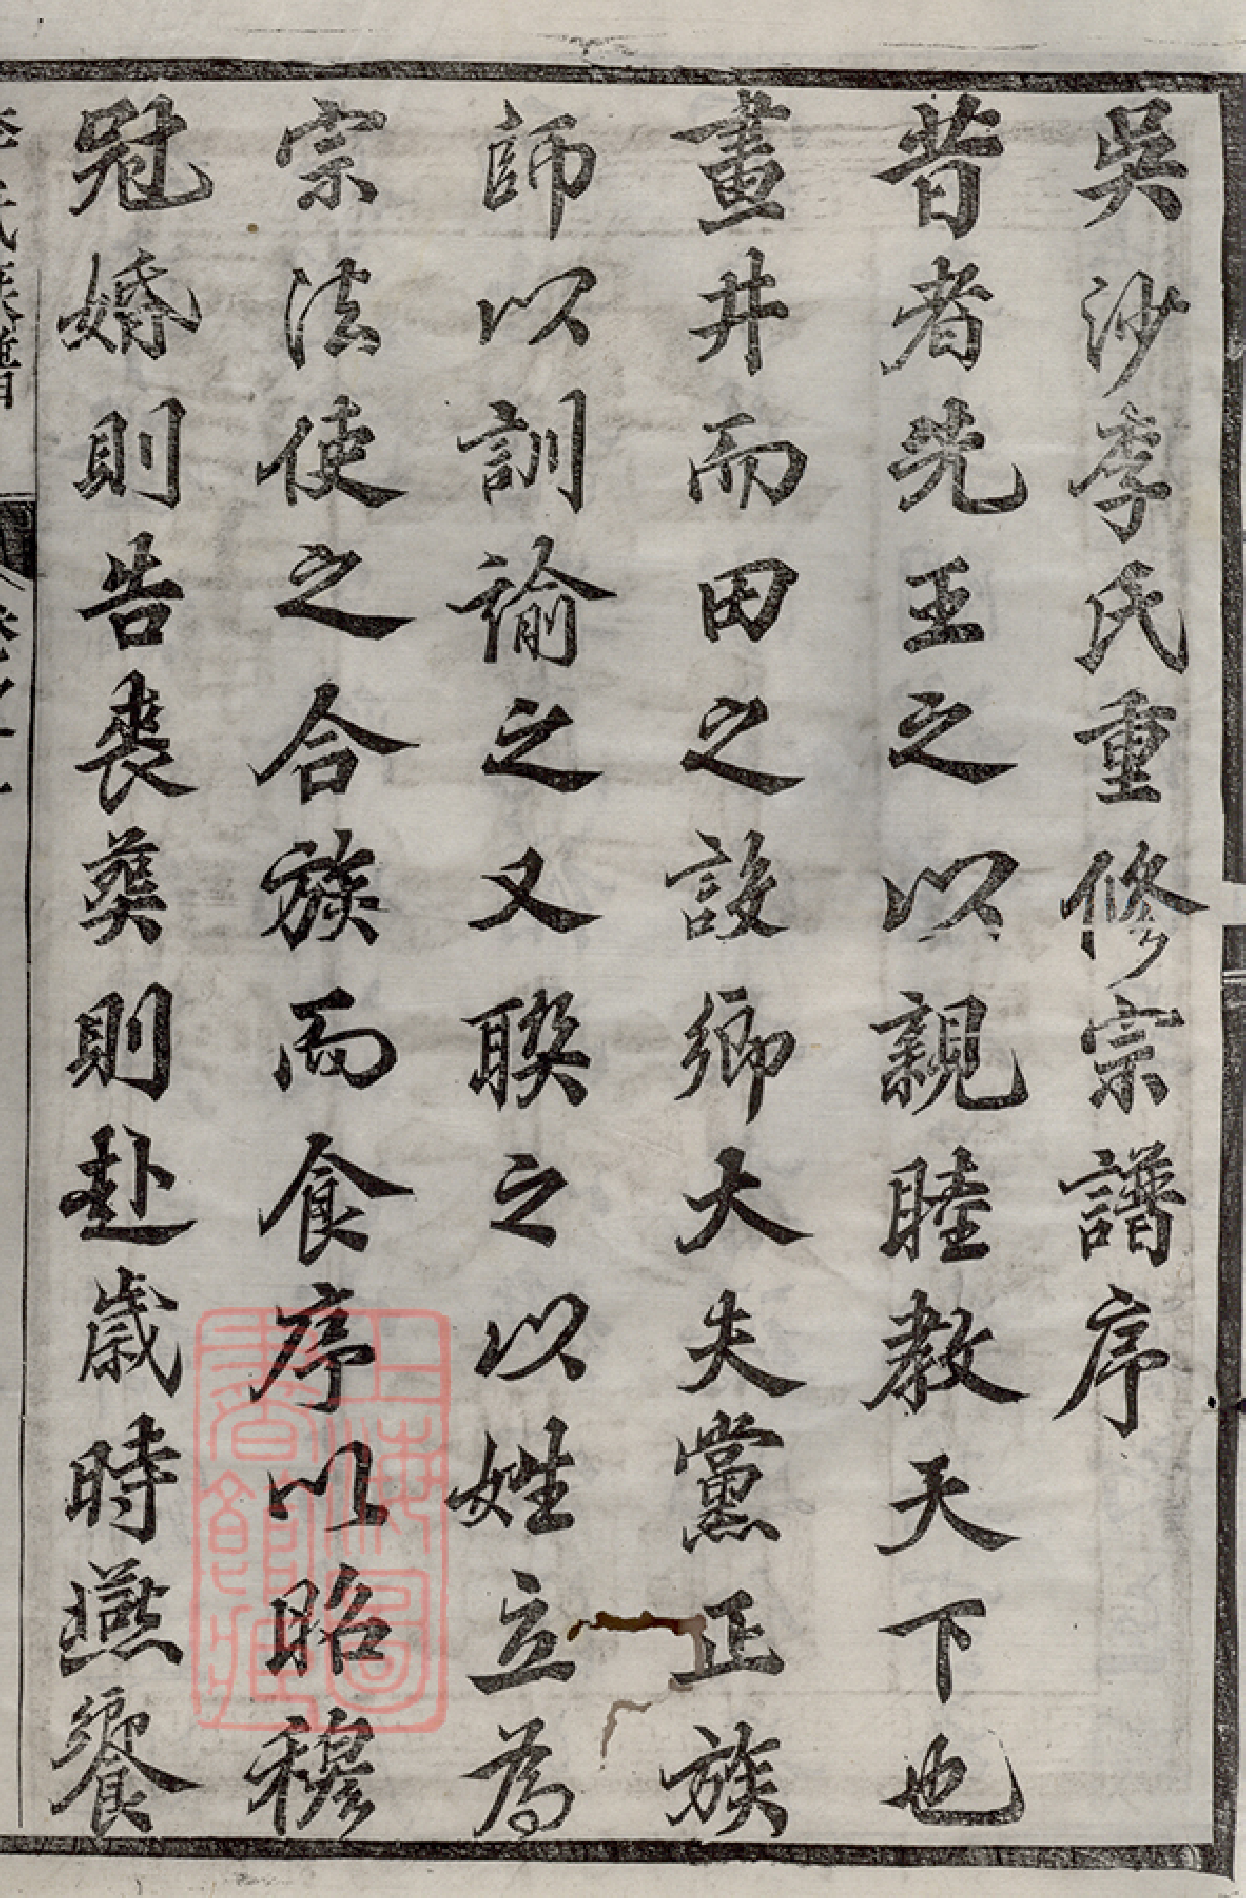 吳沙李氏重修宗譜序
昔者先王之以親睦教天下也
畫井而田之設鄉大夫黨正族
師以訓諭之又聯之以姓立為
宗法使之合族而食序以昭穆
冠婚則告喪葬則赴歲時燕饗
上海圖
書館藏